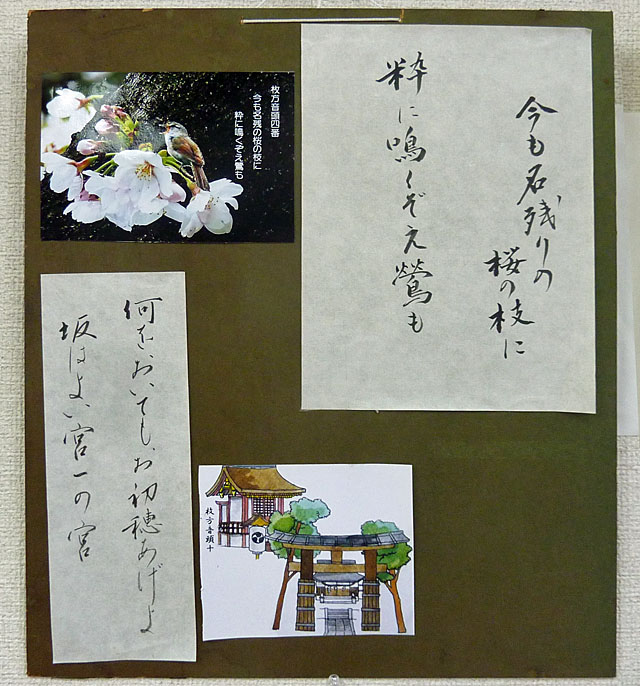 今も名残りの
桜の枝に
粋に鳴くぞえ鶯も
枚方音頭四番
今も名残の桜の枝に
粋に鳴くぞえ鶯も
何をおいてもお初穂あげよ
坂はよい宮一の宮
枚方音頭十